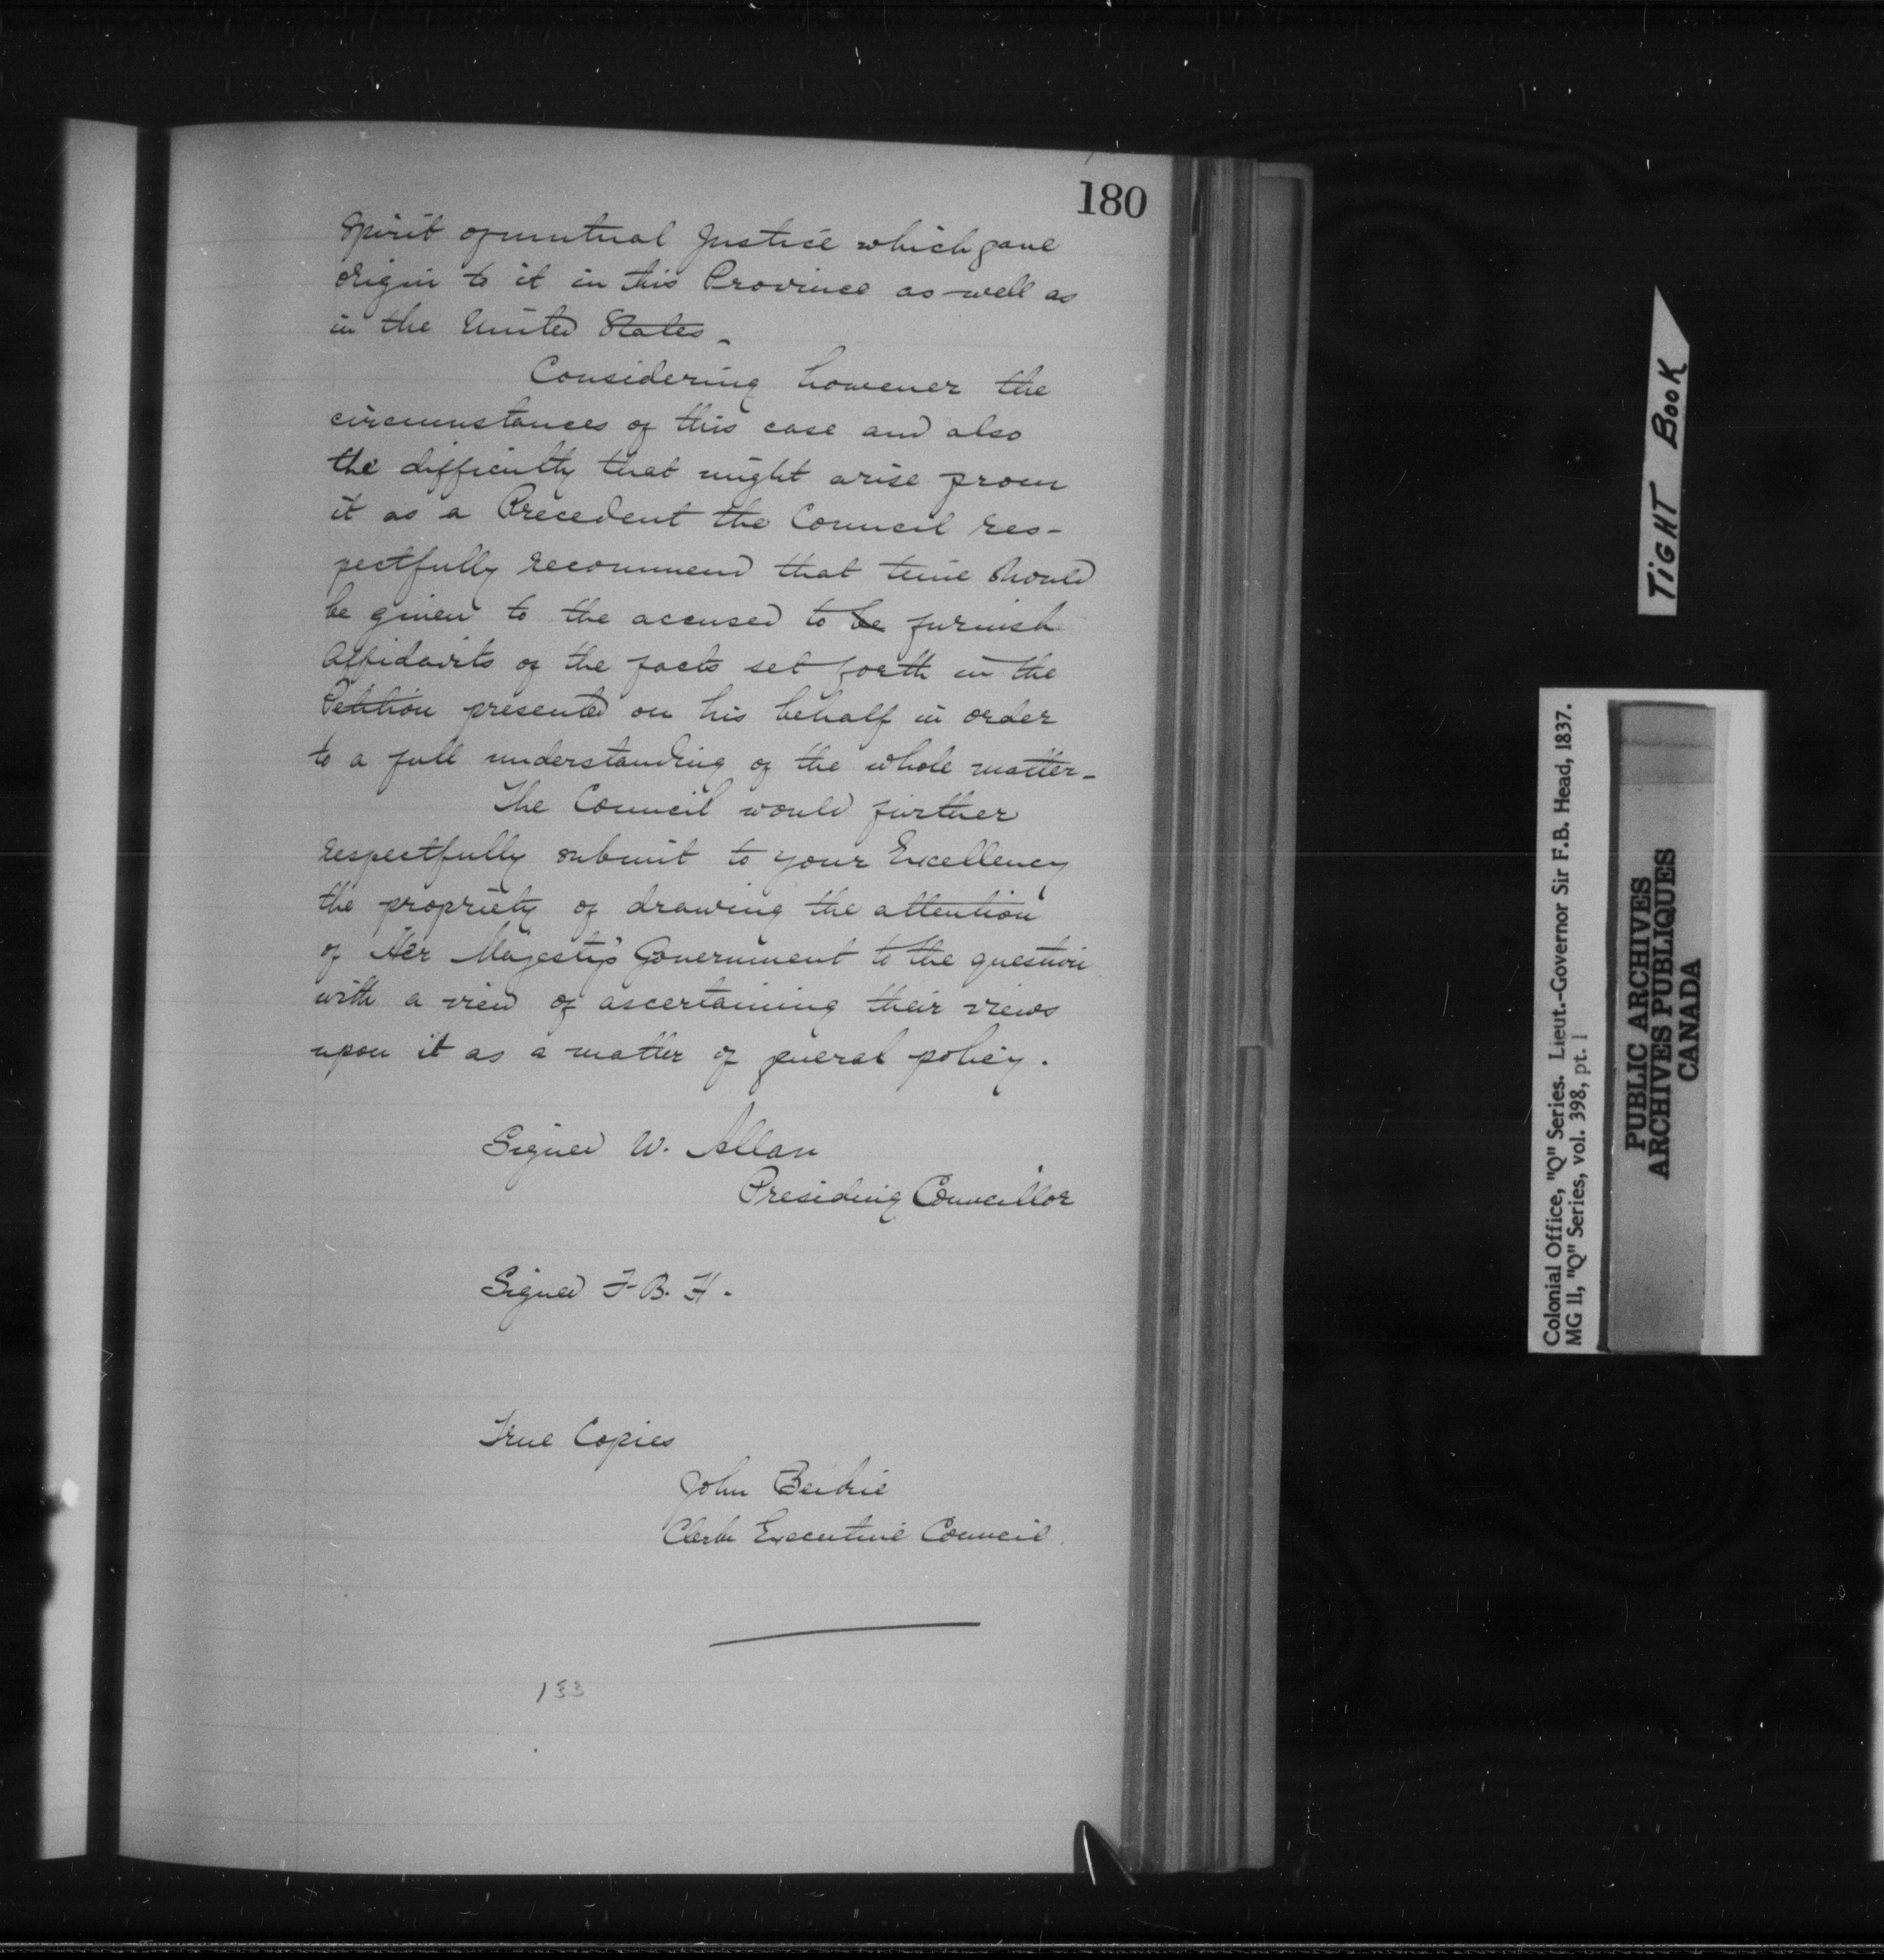 180
Spirit of mutual Justice which gave
origin to it in this Province as well as
in the United States_
Considering however the
circumstances of this case and also
the difficulty that might arise from
it as a Precedent the Council res-
pectfully recommend that time should
be given to the accused to be furnish
Affidavits of the facts set forth in the
Petition presented on his behalf in order
to a full understanding of the whole matter_
The Council would further
respectfully submit to your Excellency
the propriety of drawing the attention
of Her Majesty's Government to the question
with a view of ascertaining their views
upon it as a matter of general policy.
Signed W. Allan
Presiding Councillor
Signed F. B. H.
True Copies
John Beikie
Clerk Executive Council.
133
TIGHT BOOK
Colonial Office, "Q" Series. Lieut.-Governor Sir F.B. Head, 1837.
MG 11, "Q" Series, vol. 398, pt. 1
PUBLIC ARCHIVES
ARCHIVES PUBLIQUES
CANADA